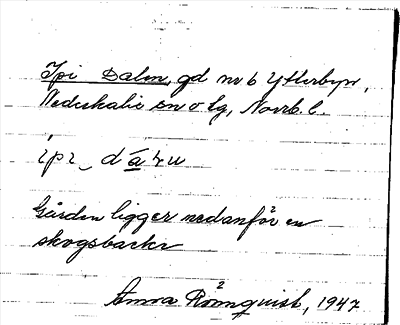 Ipi Dalen, gd nr 6 Ytterbyn,
Nederkalix sn o tg, Norrb. l.
Gården ligger nedanför en
skogsbacke
Anna Rönnquist, 1947